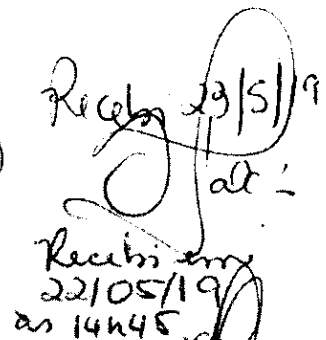 Recebi 23/5/19
Recebi em
22/05/19
as 14h45